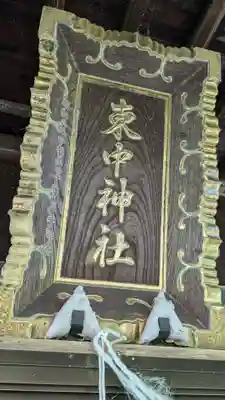 東中神社